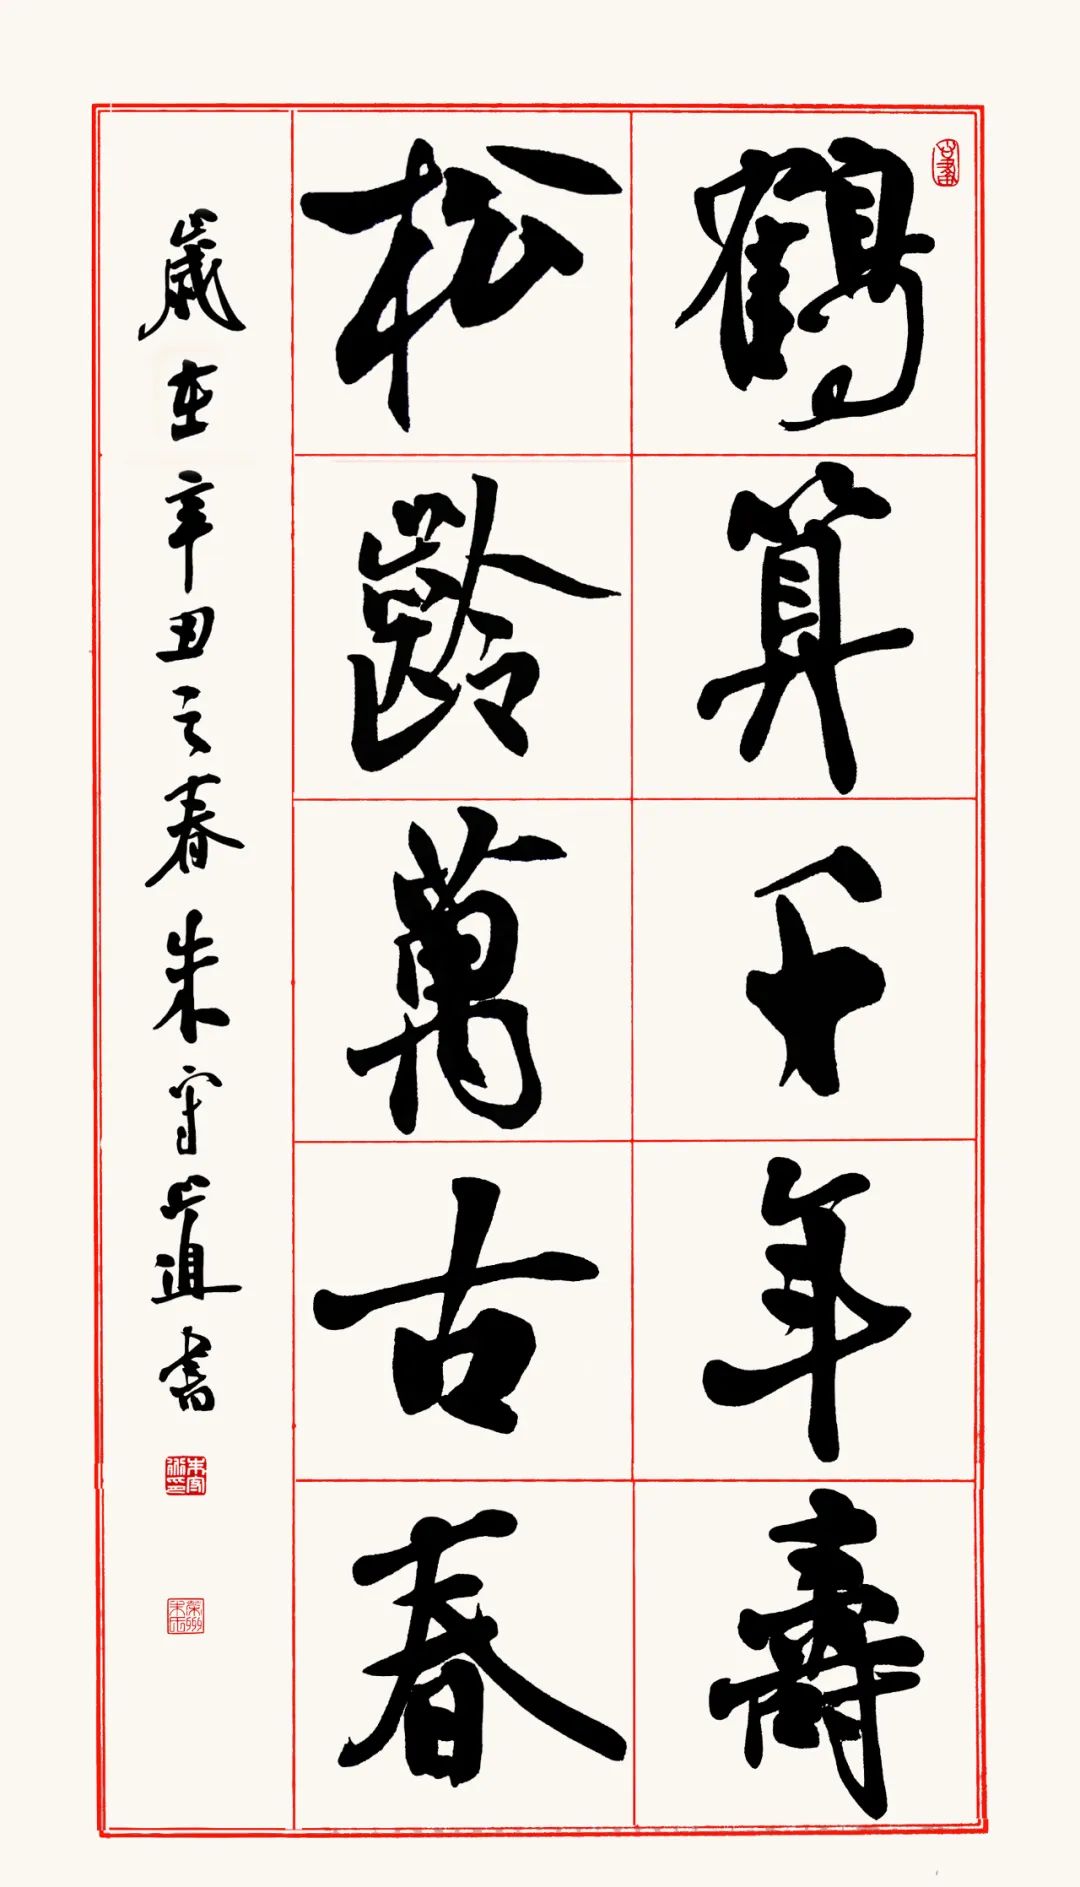 鶴算千年壽
松齡萬古春
歲在辛丑之春朱守道書